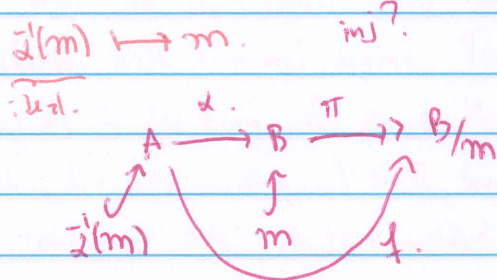 α⁻¹(m) ⟼ m. inj?
A →α. B ↠π B/m
α⁻¹(m) m f.